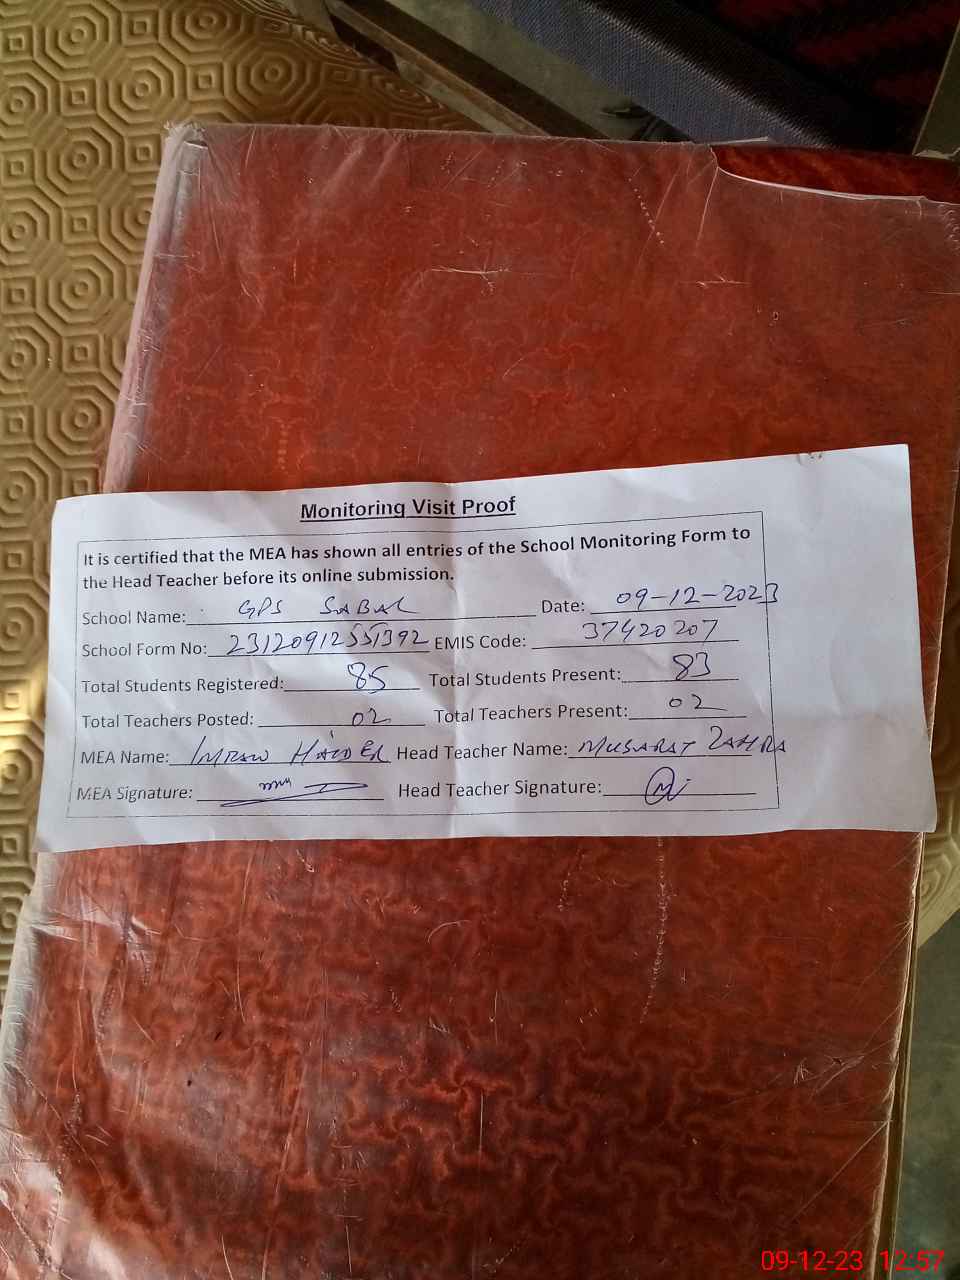 Monitoring Visit Proof
It is certified that the MEA has shown all entries of the School Monitoring Form to
the Head Teacher before its online submission.
School Name: GPS SABAL Date: 09-12-2023
School Form No: 231209125551392 EMIS Code: 37420207
Total Students Registered: 85 Total Students Present: 83
Total Teachers Posted: 02 Total Teachers Present: 02
MEA Name: IMRAN HAIDER Head Teacher Name: MUSARAT ZAHRA
MEA Signature: Head Teacher Signature:
09-12-23 12:57